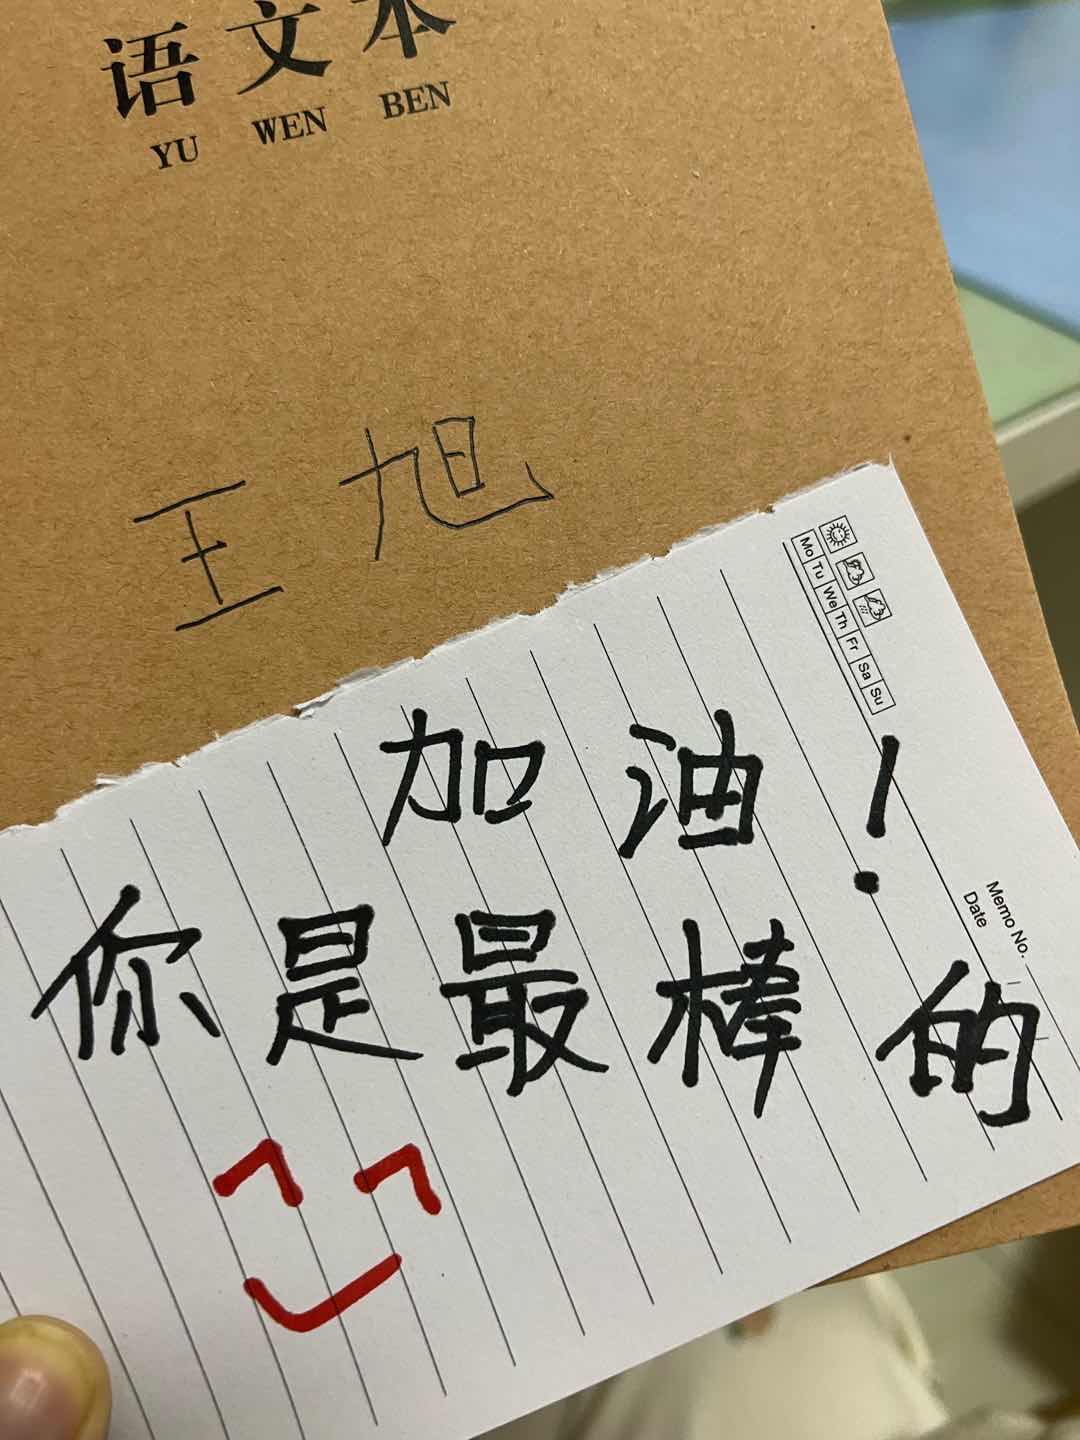 语文本
YU WEN BEN
王旭
Mo Tu We Th Fr Sa Su
Memo No.
Date
加油!
你是最棒的